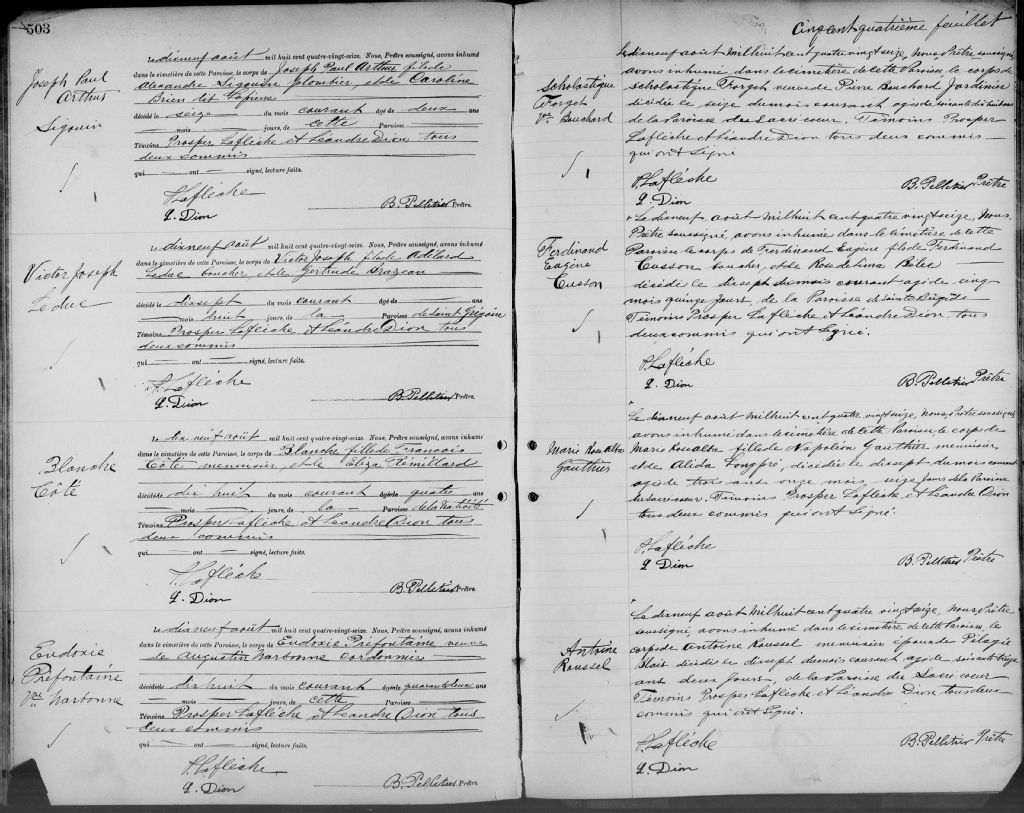 503
Joseph Paul
Arthur
Sigouin
Le dixneuf août mil huit cent quatre-vingt-seize. Nous, Prêtre soussigné, avons inhumé
dans le cimetière de cette Paroisse, le corps de Joseph Paul Arthur fils de
Alexandre Sigouin plombier, et de Caroline
Brien dit Lapierre
décédé le seize du mois courant âgé de deux ans
mois jours, de cette Paroisse
Témoins Prosper Laflèche et Léandre Dion tous
deux commis
qui ont signé, lecture faite.
P. Laflèche
L. Dion
B. Pelletier Prêtre.
Victor Joseph
Leduc
Le dixneuf août mil huit cent quatre-vingt-seize. Nous, Prêtre soussigné, avons inhumé
dans le cimetière de cette Paroisse, le corps de Victor Joseph fils de Adélard
Leduc boucher, et de Gertrude Brazeau
décédé le dixsept du mois courant âgé de
mois huit jours, de la Paroisse de Saint Grégoire
Témoins Prosper Laflèche et Léandre Dion tous
deux commis
qui ont signé, lecture faite.
P. Laflèche
L. Dion
B. Pelletier Prêtre.
Blanche
Côté
Le dix neuf août mil huit cent quatre-vingt-seize. Nous, Prêtre soussigné, avons inhumé
dans le cimetière de cette Paroisse, le corps de Blanche fille de François
Côté menuisier et de Eliza Rémillard
décédée dix huit du mois courant âgée de quatre ans
mois jours, de la Paroisse
Témoins Prosper Laflèche et Léandre Dion tous
deux commis
qui ont signé, lecture faite.
P. Laflèche
L. Dion
B. Pelletier Prêtre.
Eudoxie
Préfontaine
Vve Narbonne
Le dixneuf août mil huit cent quatre-vingt-seize. Nous, Prêtre soussigné, avons inhumé
dans le cimetière de cette Paroisse, le corps de Eudoxie Préfontaine veuve
de Augustin Narbonne cordonnier
décédée le dix huit du mois courant âgée de quarante deux ans
mois jours, de cette Paroisse
Témoins Prosper Laflèche et Léandre Dion tous
deux commis
qui ont signé, lecture faite.
P. Laflèche
L. Dion
B. Pelletier Prêtre.
Cinq cent quatrième feuillet
Scholastique
Forget
Vve Bouchard
Le dixneuf août mil huit cent quatre vingt seize, Nous Prêtre soussigné
avons inhumé dans le cimetière de cette Paroisse le corps de
Scholastique Forget veuve de Pierre Bouchard Jardinier
décédée le seize du mois courant agée de soixante dix huit ans
de la Paroisse du Sacré coeur. Témoins Prosper
Laflèche et Léandre Dion tous deux commis
qui ont signé
P. Laflèche
L. Dion
B. Pelletier Prêtre
Ferdinand
Eugène
Cusson
Le dixneuf août mil huit cent quatre vingt seize, Nous
Prêtre soussigné, avons inhumé dans le cimetière de cette
Paroisse le corps de Ferdinand Eugène fils de Ferdinand
Cusson boucher, et de Rose de Lima Bélec
décédé le dixsept du mois courant agé de cinq
mois quinze jours, de la Paroisse de Sainte Brigide
Témoins Prosper Laflèche et Léandre Dion tous
deux commis qui ont signé.
P. Laflèche
L. Dion
B. Pelletier Prêtre
Marie Rosealba
Gauthier
Le dixneuf août mil huit cent quatre vingt seize, Nous, Prêtre soussigné
avons inhumé dans le cimetière de cette Paroisse, le corps de
Marie Rosealba fille de Napoléon Gauthier menuisier,
et de Alida Longpré, décédée le dixsept du mois courant
agée de trois ans onze mois, seize jours de la Paroisse
du Sacré coeur. Témoins Prosper Laflèche et Léandre Dion
tous deux commis qui ont signé.
P. Laflèche
L. Dion
B. Pelletier Prêtre
Antoine
Roussel
Le dixneuf août mil huit cent quatre vingt seize, Nous, Prêtre
soussigné, avons inhumé dans le cimetière de cette Paroisse, le
corps de Antoine Roussel menuisier époux de Pélagie
Blais décédé le dixsept du mois courant agé de soixante treize
ans deux jours, de la Paroisse du Sacré coeur
Témoins Prosper Laflèche et Léandre Dion tous deux
commis qui ont signé.
P. Laflèche
L. Dion
B. Pelletier Prêtre